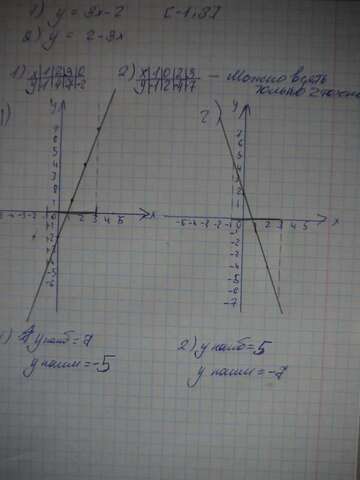 1) y = 3x-2 [-1;3]
2) y = 2-3x
1) x 1 2 3 0
y 1 4 7 -2
2) x 1 0 2 3
y -1 2 -4 -7 - Можно взять
только 2 точки
y y
2)
7 7
6 6
5 5
4 4
3 3
2 2
1 1
-4 -3 -2 -1 0 1 2 3 4 5 x -5 -4 -3 -2 -1 0 1 2 3 4 5 x
-1 -1
-2 -2
-3 -3
-4 -4
-5 -5
-6 -6
-7
1) y наиб = 7 2) y наиб = 5
y наим = -5 y наим = -7